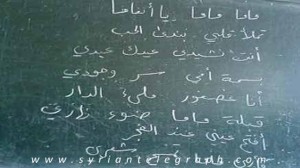 ماما ماما يا أنغاما
تملأ قلبي بندى الحب
أنت نشيدي عيدك عيدي
بسمة أمي سر وجودي
أنا عصفور ملء الدار
قبلة ماما ضوء نهاري
أفتح عيني عند الفجر
www.syriantelegraph.com